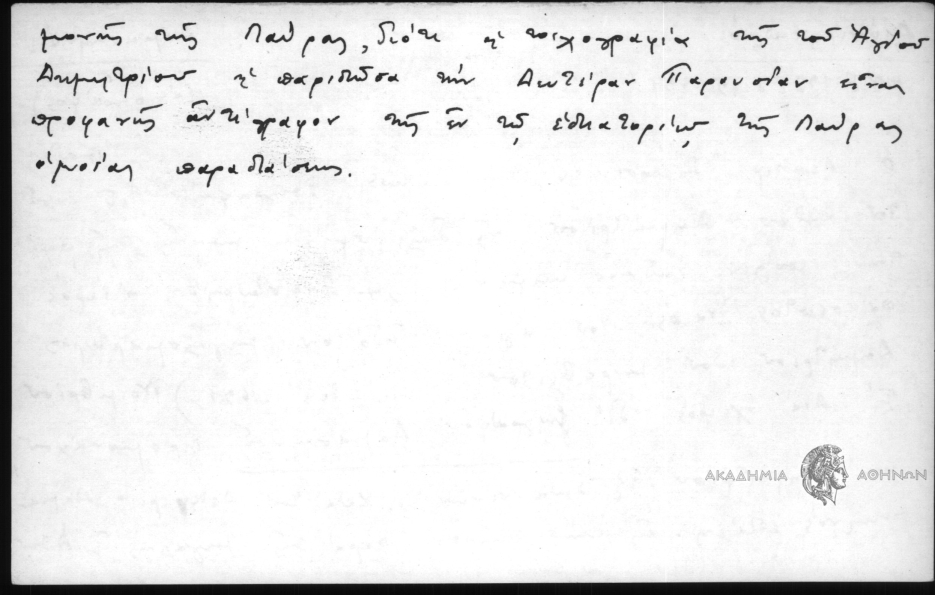 μονῆς τῆς Λαύρας, διότι ἡ τοιχογραφία τῆς τοῦ Ἁγίου
Δημητρίου ἡ παριστῶσα τὴν Δευτέραν Παρουσίαν εἶναι
προφανῆς ἀντίγραφον τῆς ἐν τῷ τῆς Λαύρας
ὁμοίας παραστάσεως.
ΑΚΑΔΗΜΙΑ ΑΘΗΝΩΝ